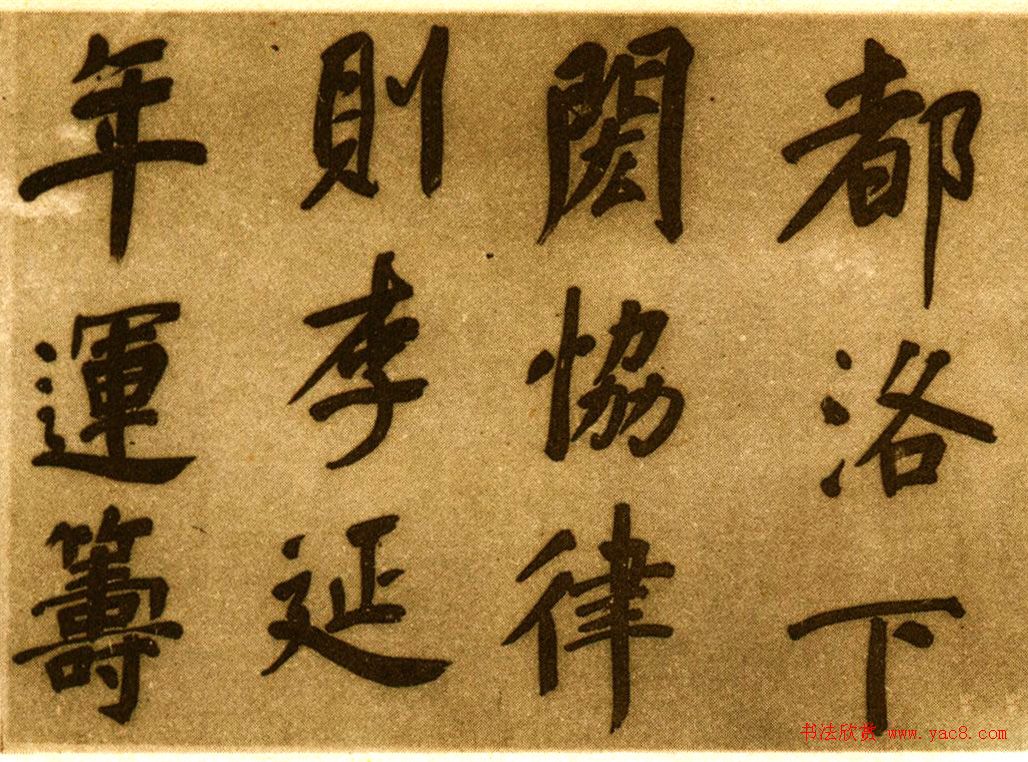 都洛下
閎協律
則李延
年運籌
书法欣赏 www.yac8.com